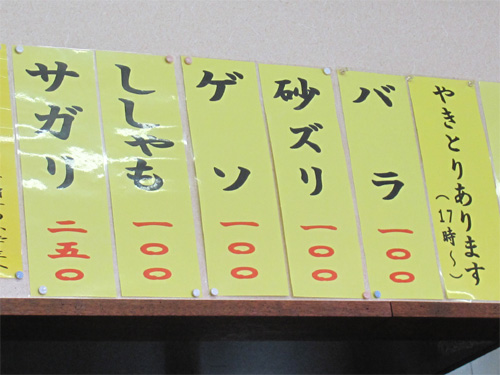 やきとりあります
(17時〜)
バラ
一〇〇
砂ズリ
一〇〇
ゲソ
一〇〇
ししゃも
一〇〇
サガリ
二五〇